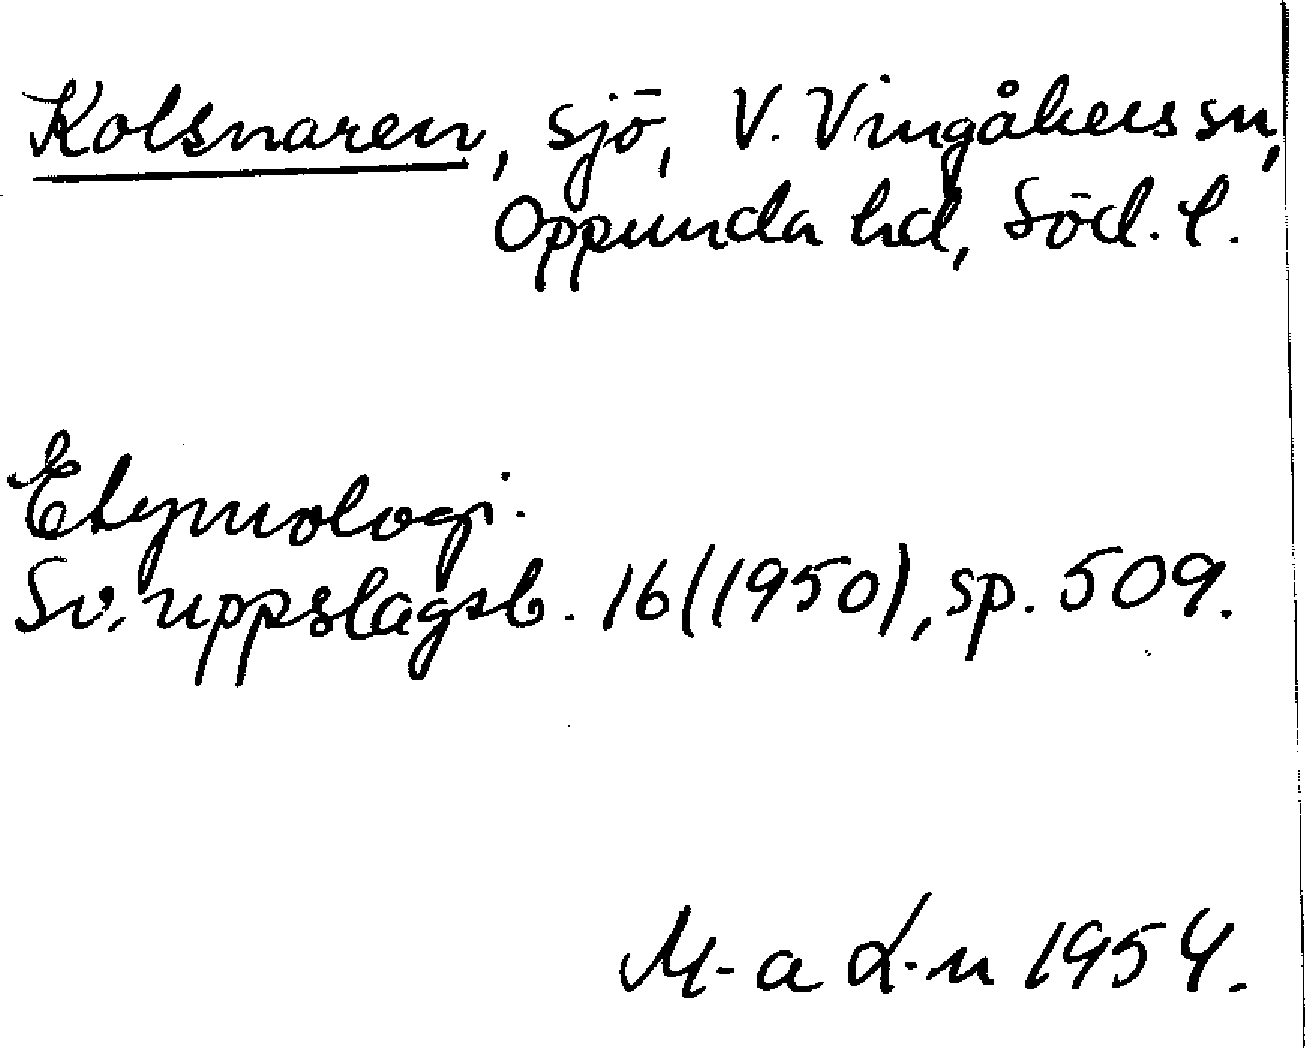 Kolsnaren, sjö, V. Vingåkers sn,
Oppunda hd, Söd. l.
Etymologi.
Sv. uppslagsb. 16 (1950), sp. 509.
M-a L-n 1954.